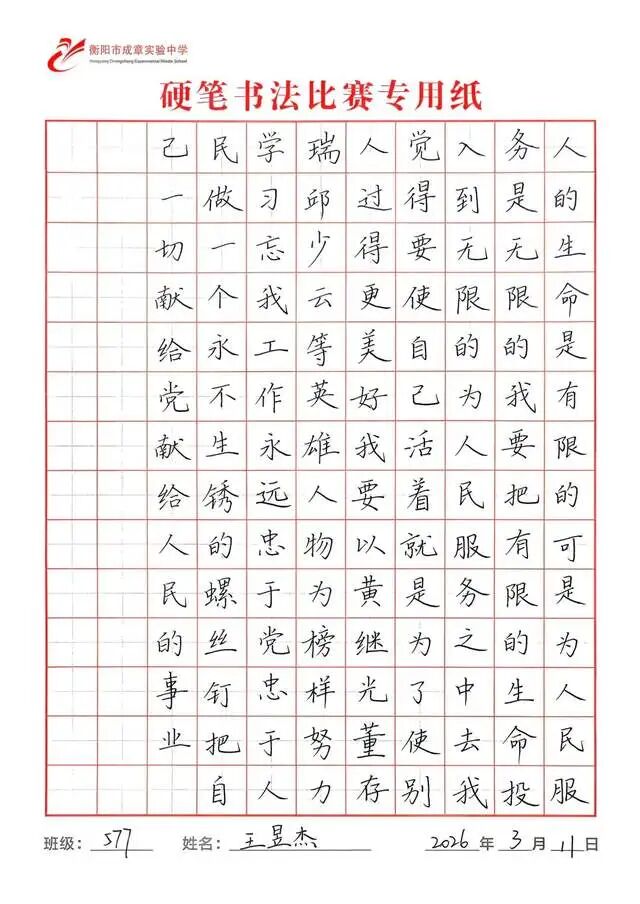 衡阳市成章实验中学
Hengyang Chengzhang Experimental Middle School
硬笔书法比赛专用纸
人的生命是有限的可是为人民服
务是无限的我要把有限的生命投
入到无限的为人民服务之中去我
觉得要使自己活着就是为了使别
人过得更美好我要以黄继光董存
瑞邱少云等英雄人物为榜样努力
学习忘我工作永远忠于党忠于人
民做一个永不生锈的螺丝钉把自
己一切献给党献给人民的事业
班级：577 姓名：王昱杰 2026年3月11日